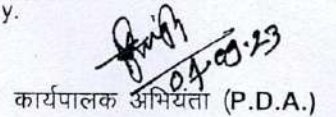 y.
04.09.23
कार्यपालक अभियंता (P.D.A.)